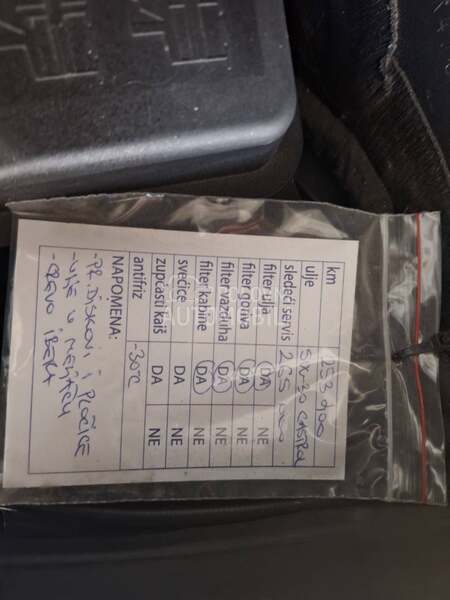 km 253 000
ulje 5W-30 CASTROL
sledeći servis 265 000
filter ulja DA NE
filter goriva DA NE
filter vazduha DA NE
filter kabine DA NE
svećice DA NE
zupčasti kaiš DA NE
antifriz -30°C
NAPOMENA:
-PR. DISKOVI I PLOČICE
-ULJE U
-CREVO